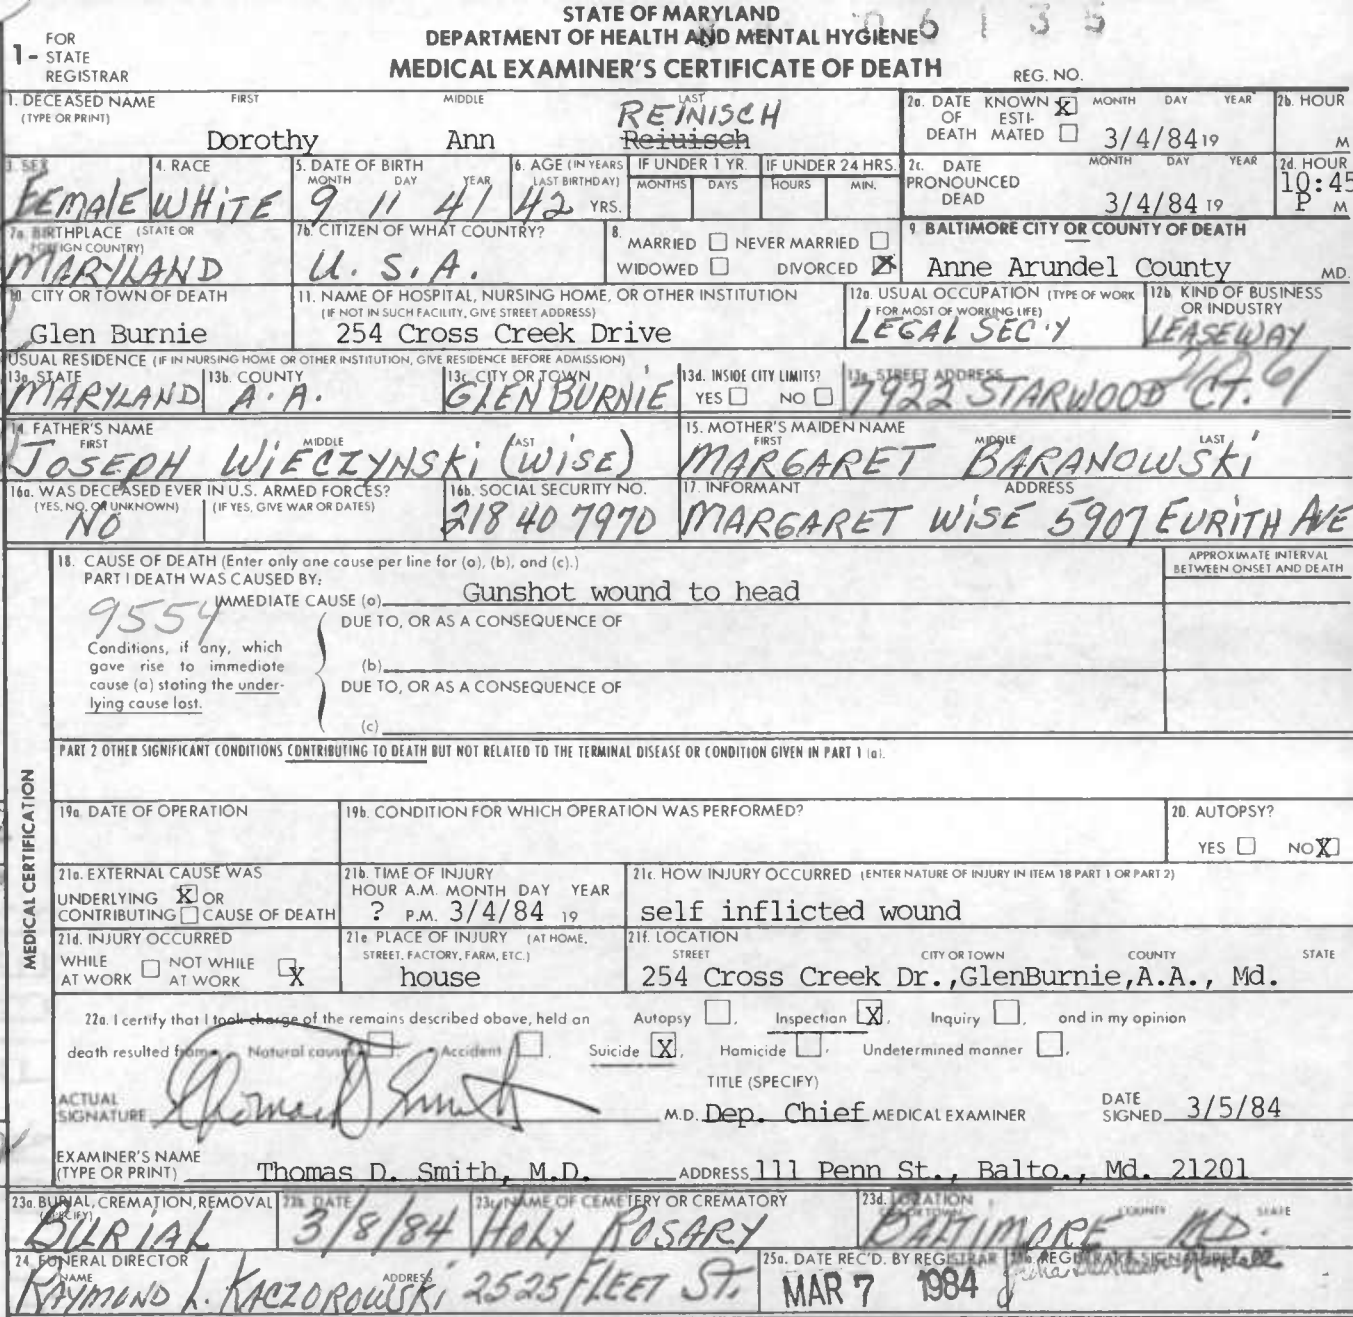 STATE OF MARYLAND
DEPARTMENT OF HEALTH AND MENTAL HYGIENE 6 1 3 5
1- FOR STATE REGISTRAR
MEDICAL EXAMINER'S CERTIFICATE OF DEATH REG. NO.
1. DECEASED NAME FIRST MIDDLE LAST
(TYPE OR PRINT) REINISCH
Dorothy Ann Reiuisch
2a. DATE OF DEATH KNOWN X ESTIMATED MONTH DAY YEAR 3/4/84 19
2b. HOUR M
3. SEX Female
4. RACE WHITE
5. DATE OF BIRTH MONTH DAY YEAR 9 11 41
6. AGE (IN YEARS LAST BIRTHDAY) 42 YRS.
IF UNDER 1 YR. MONTHS DAYS
IF UNDER 24 HRS. HOURS MIN.
2c. DATE PRONOUNCED DEAD MONTH DAY YEAR 3/4/84 19
2d. HOUR 10:45 P M
7a. BIRTHPLACE (STATE OR FOREIGN COUNTRY) MARYLAND
7b. CITIZEN OF WHAT COUNTRY? U.S.A.
8. MARRIED NEVER MARRIED
WIDOWED DIVORCED X
9. BALTIMORE CITY OR COUNTY OF DEATH
Anne Arundel County MD.
10. CITY OR TOWN OF DEATH
Glen Burnie
11. NAME OF HOSPITAL, NURSING HOME, OR OTHER INSTITUTION
(IF NOT IN SUCH FACILITY, GIVE STREET ADDRESS)
254 Cross Creek Drive
12a. USUAL OCCUPATION (TYPE OF WORK FOR MOST OF WORKING LIFE)
LEGAL SEC'Y
12b. KIND OF BUSINESS OR INDUSTRY
LEASEWAY
USUAL RESIDENCE (IF IN NURSING HOME OR OTHER INSTITUTION, GIVE RESIDENCE BEFORE ADMISSION)
13a. STATE MARYLAND
13b. COUNTY A.A.
13c. CITY OR TOWN GLEN BURNIE
13d. INSIDE CITY LIMITS? YES NO
13e. STREET ADDRESS 21061
7922 STARWOOD CT.
14. FATHER'S NAME FIRST MIDDLE LAST
JOSEPH WIECZYNSKI (WISE)
15. MOTHER'S MAIDEN NAME FIRST MIDDLE LAST
MARGARET BARANOWSKI
16a. WAS DECEASED EVER IN U.S. ARMED FORCES?
(YES, NO, OR UNKNOWN) (IF YES, GIVE WAR OR DATES)
NO
16b. SOCIAL SECURITY NO.
218 40 7970
17. INFORMANT ADDRESS
MARGARET WISE 5907 EURITH AVE
18. CAUSE OF DEATH (Enter only one cause per line for (a), (b), and (c).)
APPROXIMATE INTERVAL BETWEEN ONSET AND DEATH
PART I DEATH WAS CAUSED BY:
9554 IMMEDIATE CAUSE (a) Gunshot wound to head
DUE TO, OR AS A CONSEQUENCE OF
Conditions, if any, which gave rise to immediate cause (a) stating the underlying cause last.
(b)
DUE TO, OR AS A CONSEQUENCE OF
(c)
PART 2 OTHER SIGNIFICANT CONDITIONS CONTRIBUTING TO DEATH BUT NOT RELATED TO THE TERMINAL DISEASE OR CONDITION GIVEN IN PART 1 (a).
MEDICAL CERTIFICATION
19a. DATE OF OPERATION
19b. CONDITION FOR WHICH OPERATION WAS PERFORMED?
20. AUTOPSY?
YES NO X
21a. EXTERNAL CAUSE WAS
UNDERLYING X OR
CONTRIBUTING CAUSE OF DEATH
21b. TIME OF INJURY
HOUR A.M. MONTH DAY YEAR
? P.M. 3/4/84 19
21c. HOW INJURY OCCURRED (ENTER NATURE OF INJURY IN ITEM 18 PART 1 OR PART 2)
self inflicted wound
21d. INJURY OCCURRED
WHILE AT WORK NOT WHILE AT WORK X
21e PLACE OF INJURY (AT HOME, STREET, FACTORY, FARM, ETC.)
house
21f. LOCATION
STREET CITY OR TOWN COUNTY STATE
254 Cross Creek Dr.,GlenBurnie,A.A., Md.
22a. I certify that I took charge of the remains described above, held an Autopsy , Inspection X, Inquiry , and in my opinion
death resulted from Natural causes , Accident , Suicide X, Homicide , Undetermined manner ,
TITLE (SPECIFY)
ACTUAL SIGNATURE Thomas D Smith M.D. Dep. Chief MEDICAL EXAMINER DATE SIGNED 3/5/84
EXAMINER'S NAME
(TYPE OR PRINT) Thomas D. Smith, M.D. ADDRESS 111 Penn St., Balto., Md. 21201
23a. BURIAL, CREMATION, REMOVAL (SPECIFY)
BURIAL
23b. DATE
3/8/84
23c. NAME OF CEMETERY OR CREMATORY
HOLY ROSARY
23d. LOCATION CITY OR TOWN COUNTY STATE
BALTIMORE MD.
24. FUNERAL DIRECTOR
NAME ADDRESS
RAYMOND L. KACZOROWSKI 2525 FLEET ST.
25a. DATE REC'D. BY REGISTRAR
MAR 7 1984
25b. REGISTRAR'S SIGNATURE